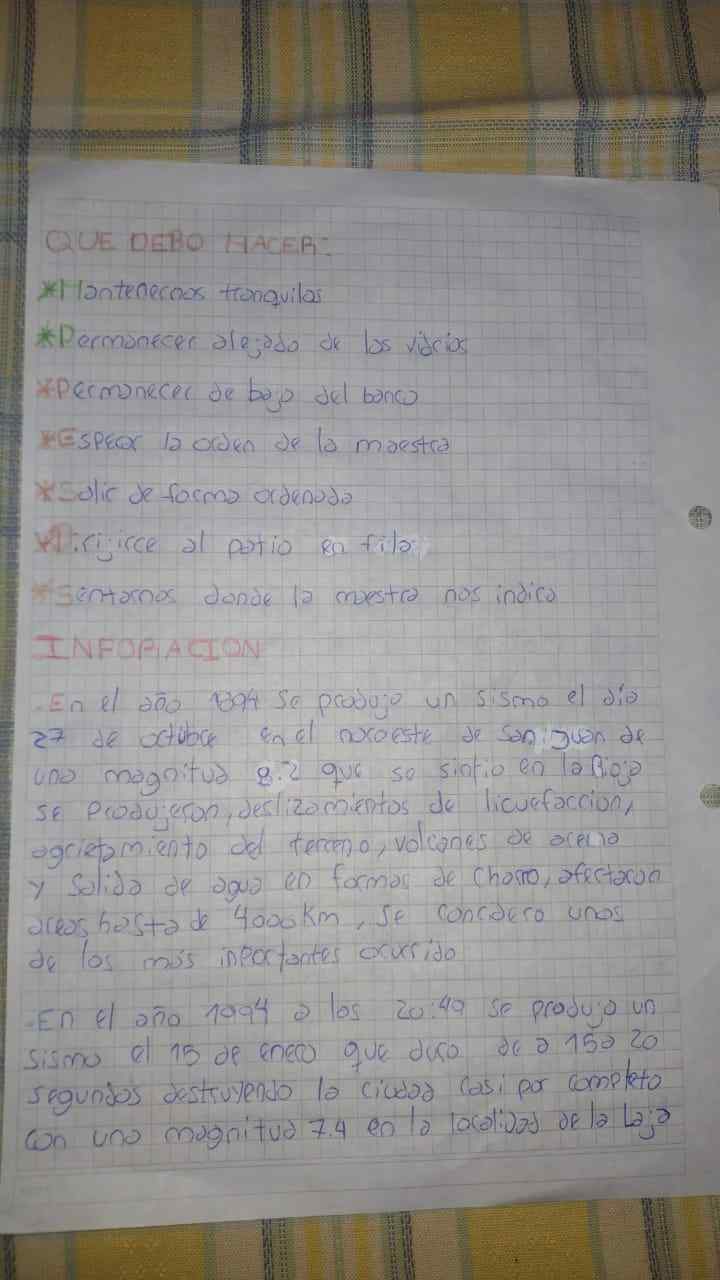 QUE DEBO HACER:
*Mantenecnos tranquilos
*Permanecer alejado de los vidrios
*Permanecer de bajo del banco
*Espear la orden de la maestra
*Salir de forma ordenada
*Dirijirce al patio en fila
*Sentarnos donde la maestra nos indica
INFORMACION
-En el año 1894 se produjo un sismo el día
27 de octubre en el noroeste de San juan de
una magnitud 8.2 que se sintio en la Rioja
se produjeron, deslizamientos de licuefaccion,
agrietamiento del terreno, volcanes de arena
y salida de agua en formas de chorro, afectaron
areas hasta de 4000km, se concidero unos
de los más inportantes ocurrido
-En el año 1994 a las 20:49 se produjo un
sismo el 15 de enero que duro de a 15 a 20
segundos destruyendo la ciudad casi por completo
con una magnitud 7.4 en la localidad de la Laja